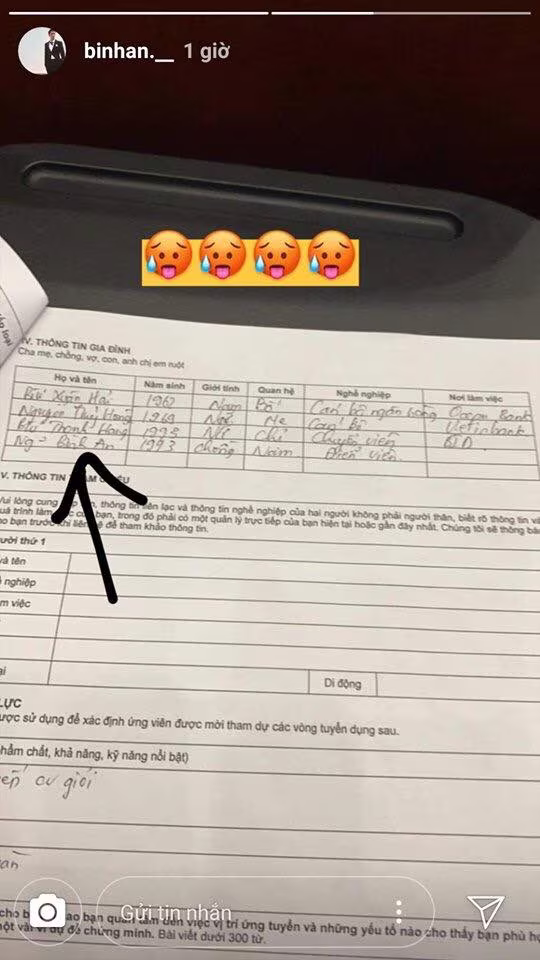 binhan.__ 1 giờ
IV. THÔNG TIN GIA ĐÌNH
Cha mẹ, chồng, vợ, con, anh chị em ruột
Họ và tên Năm sinh Giới tính Quan hệ Nghề nghiệp Nơi làm việc
Bùi Xuân Hải 1967 Nam Bố Cán bộ ngân hàng Ocean Bank
Nguyễn Thuý Hằng 1969 Nữ Mẹ Cán bộ Vietinbank
Bùi Thanh 1993 Nữ Chị Chuyên viên
Ngô Bình An 1993 chồng Nam Diễn viên
V. THÔNG TIN THAM
Vui lòng cung thông tin liên lạc và thông tin nghề nghiệp của hai người không phải người thân, biết rõ thông tin về
quá trình làm bạn, trong đó phải có một quản lý trực tiếp của bạn hiện tại hoặc gần đây nhất. Chúng tôi sẽ thông báo
cho bạn trước khi liên hệ để tham khảo thông tin.
thứ 1
và tên
nghiệp
m việc
Di động
LỰC
được sử dụng để xác định ứng viên được mời tham dự các vòng tuyển dụng sau.
phẩm chất, khả năng, kỹ năng nổi bật)
cv giỏi
cho bạn quan tâm đến việc vị trí ứng tuyển và những yếu tố nào cho thấy bạn phù
một vài ví dụ để chứng minh. Bài viết dưới 300 từ.
Gửi tin nhắn